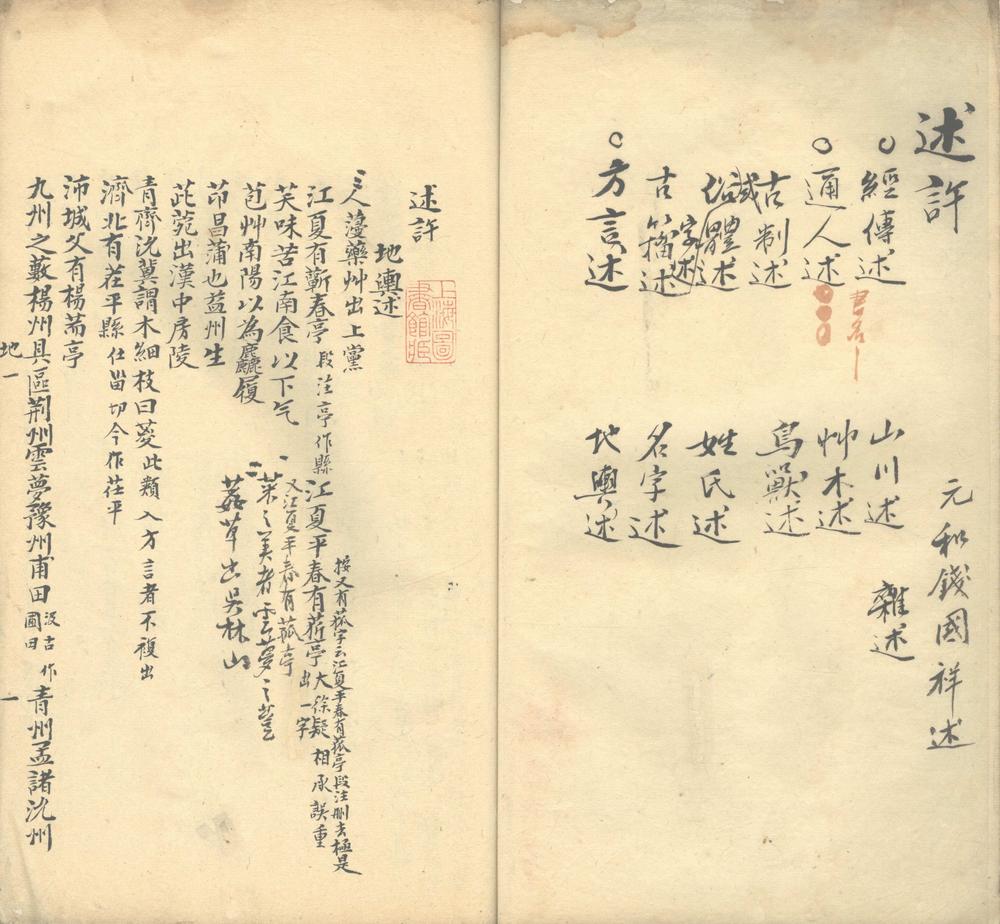 述許
經傳述
通人述
古制述
或體述
俗字述
古籀述
方言述
書名
元和錢國祥述
山川述
艸木述
鳥獸述
姓氏述
名字述
地輿述
雜述
述許
地輿述
上海圖書館藏
人薓藥艸出上黨
江夏有蘄春亭 段注亭作縣 江夏平春有菥亭 大徐疑相承誤重出一字
按又有菰字云江夏平春有菰亭段注刪去極是
芺味苦江南食以下气
又江夏平春有菰亭
苞艸南陽以為麤履
菜之美者雲夢之䔇
茚昌蒲也益州生
荔草出吳林山
茈菀出漢中房陵
青齊沇冀謂木細枝曰葼 此類入方言者不複出
濟北有茬平縣 仕甾切今作茌平
沛城父有楊𦯔亭
九州之藪楊州具區荊州雲夢豫州甫田 汲古作圃田 青州孟諸沇州
地一
一